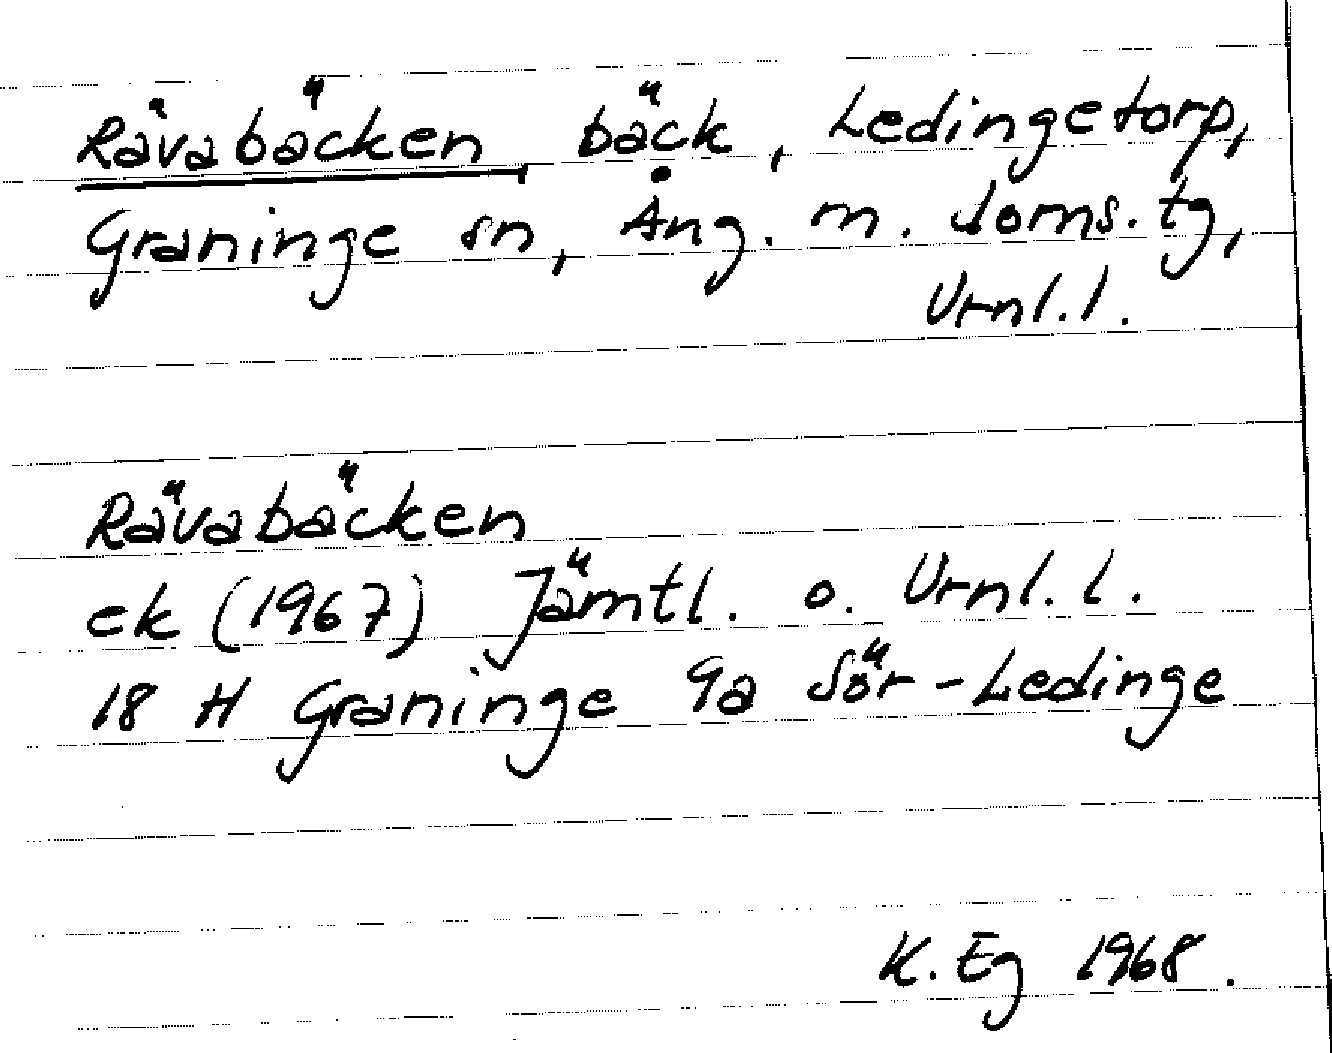 Rävabäcken, bäck, Ledingetorp,
Graninge sn, Ång. m. doms. tg,
Vrnl. l.
Rävabäcken
ek (1967) Jämtl. o. Vrnl. l.
18 H Graninge 9a Sör-Ledinge
K. Eg 1968.